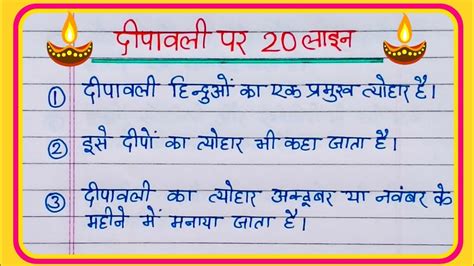 दीपावली पर 20 लाइन
① दीपावली हिन्दुओं का एक प्रमुख त्योहार है।
② इसे दीपों का त्योहार भी कहा जाता है।
③ दीपावली का त्योहार अक्टूबर या नवंबर के
महीने में मनाया जाता है।